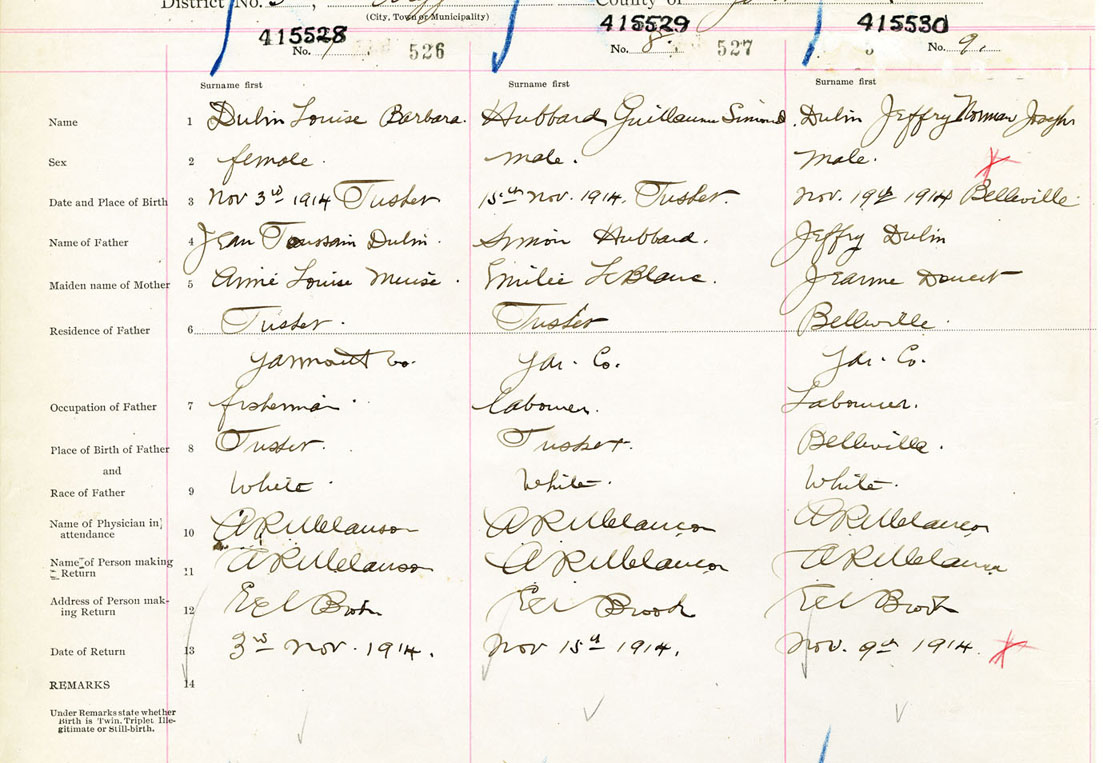 District No. 3, County of
(City, Town or Municipality)
415528 415529 415530
No. 7 526 No. 8. 527 No. 9.
Surname first Surname first Surname first
Name 1 Dulin Louise Barbara. Hubbard Guillaume Simond. Dulin Jeffry Norman Joseph
Sex 2 female. male. male.
Date and Place of Birth 3 Nov 3rd 1914 Tusket 15th Nov. 1914. Tusket. Nov. 19th 1914 Belleville
Name of Father 4 Jean Toussain Dulin. Simon Hubbard. Jeffry Dulin
Maiden name of Mother 5 Anné Louise Meuse. Emilie LeBlanc. Jeanne Doucet
Residence of Father 6 Tusket. Tusket Belleville.
Yarmouth Co. Yar. Co. Yar. Co.
Occupation of Father 7 fisherman. labourer. Labourer.
Place of Birth of Father 8 Tusket. Tusket. Belleville.
and
Race of Father 9 White. White. White.
Name of Physician in attendance 10 A R Melanson A R Melançon A R Melançon
Name of Person making Return 11 A R Melanson A R Melançon A R Melançon
Address of Person making Return 12 Eel Brook Eel Brook Eel Brook
Date of Return 13 3rd Nov. 1914. Nov 15th 1914. Nov. 9th 1914.
REMARKS 14
Under Remarks state whether
Birth is Twin, Triplet, Ille-
gitimate or Still-birth.